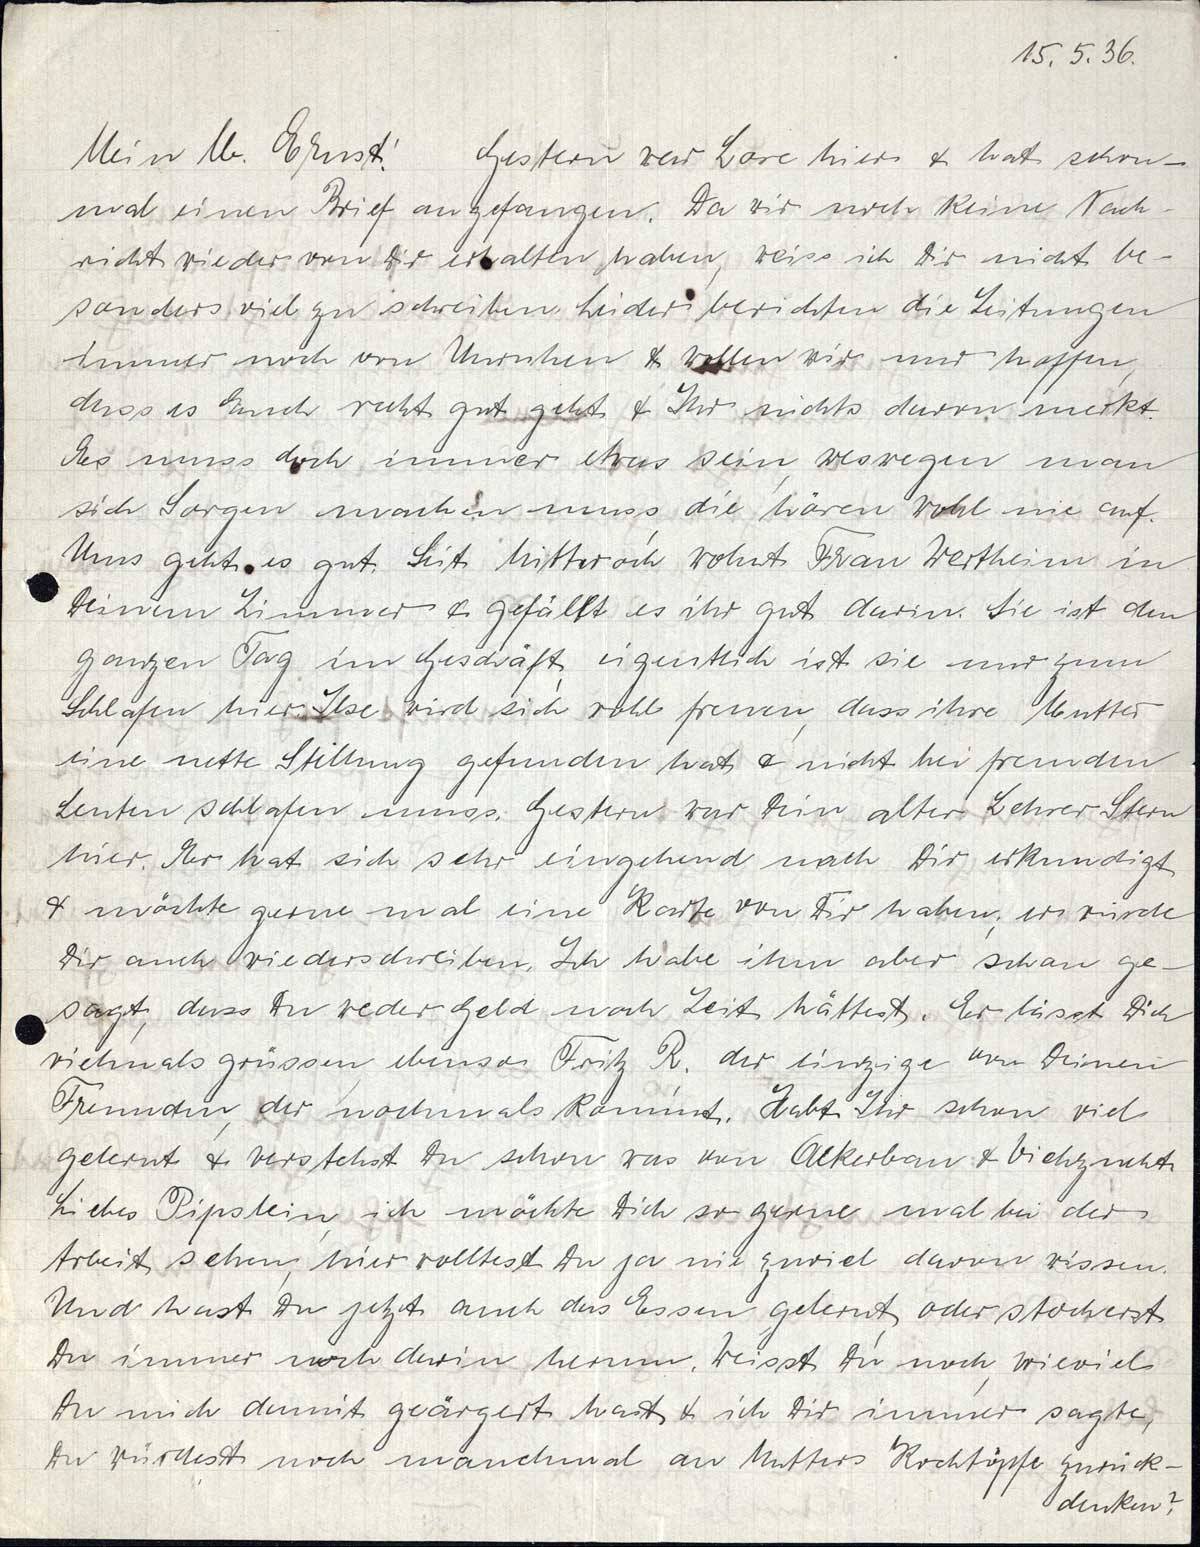 15.5.36.
Mein lb. Ernst! Gestern war Lore hier & hat schon-
mal einen Brief angefangen. Da wir noch keine Nach-
richt wieder von Dir erhalten haben, weiss ich Dir nicht be-
sonders viel zu schreiben. Leider berichten die Zeitungen
immer noch von Unruhen & wollen wir nur hoffen,
dass es Euch recht gut geht & Ihr nichts davon merkt.
Es muss doch immer etwas sein, weswegen man
sich Sorgen machen muss, die hören wohl nie auf.
Uns geht es gut. Seit Mittwoch wohnt Frau Wertheim in
Deinem Zimmer & gefällt es ihr gut darin. Sie ist den
ganzen Tag im Geschäft, eigentlich ist sie nur zum
Schlafen hier. Ilse wird sich wohl freuen, dass ihre Mutter
eine nette Stellung gefunden hat & nicht bei fremden
Leuten schlafen muss. Gestern war Dein alter Lehrer Stern
hier. Er hat sich sehr eingehend nach Dir erkundigt
& möchte gerne mal eine Karte von Dir haben, er würde
Dir auch wiederschreiben. Ich habe ihm aber schon ge-
sagt, dass Du weder Geld noch Zeit hättest. Er lässt Dich
vielmals grüssen, ebenso Fritz R. der einzige von Deinen
Freunden, der nochmals kommt. Habt Ihr schon viel
gelernt & verstehst Du schon was von Ackerbau & Viehzucht
Liebes Pipslein, ich möchte Dich so gerne mal bei der
Arbeit sehen, hier wolltest Du ja nie zuviel davon wissen.
Und hast Du jetzt auch das Essen gelernt, oder stocherst
Du immer noch darin herum. Weisst Du noch, wieviel
Du mich damit geärgert hast & ich Dir immer sagte,
Du würdest noch manchmal an Mutters Kochtöpfe zurück-
denken?